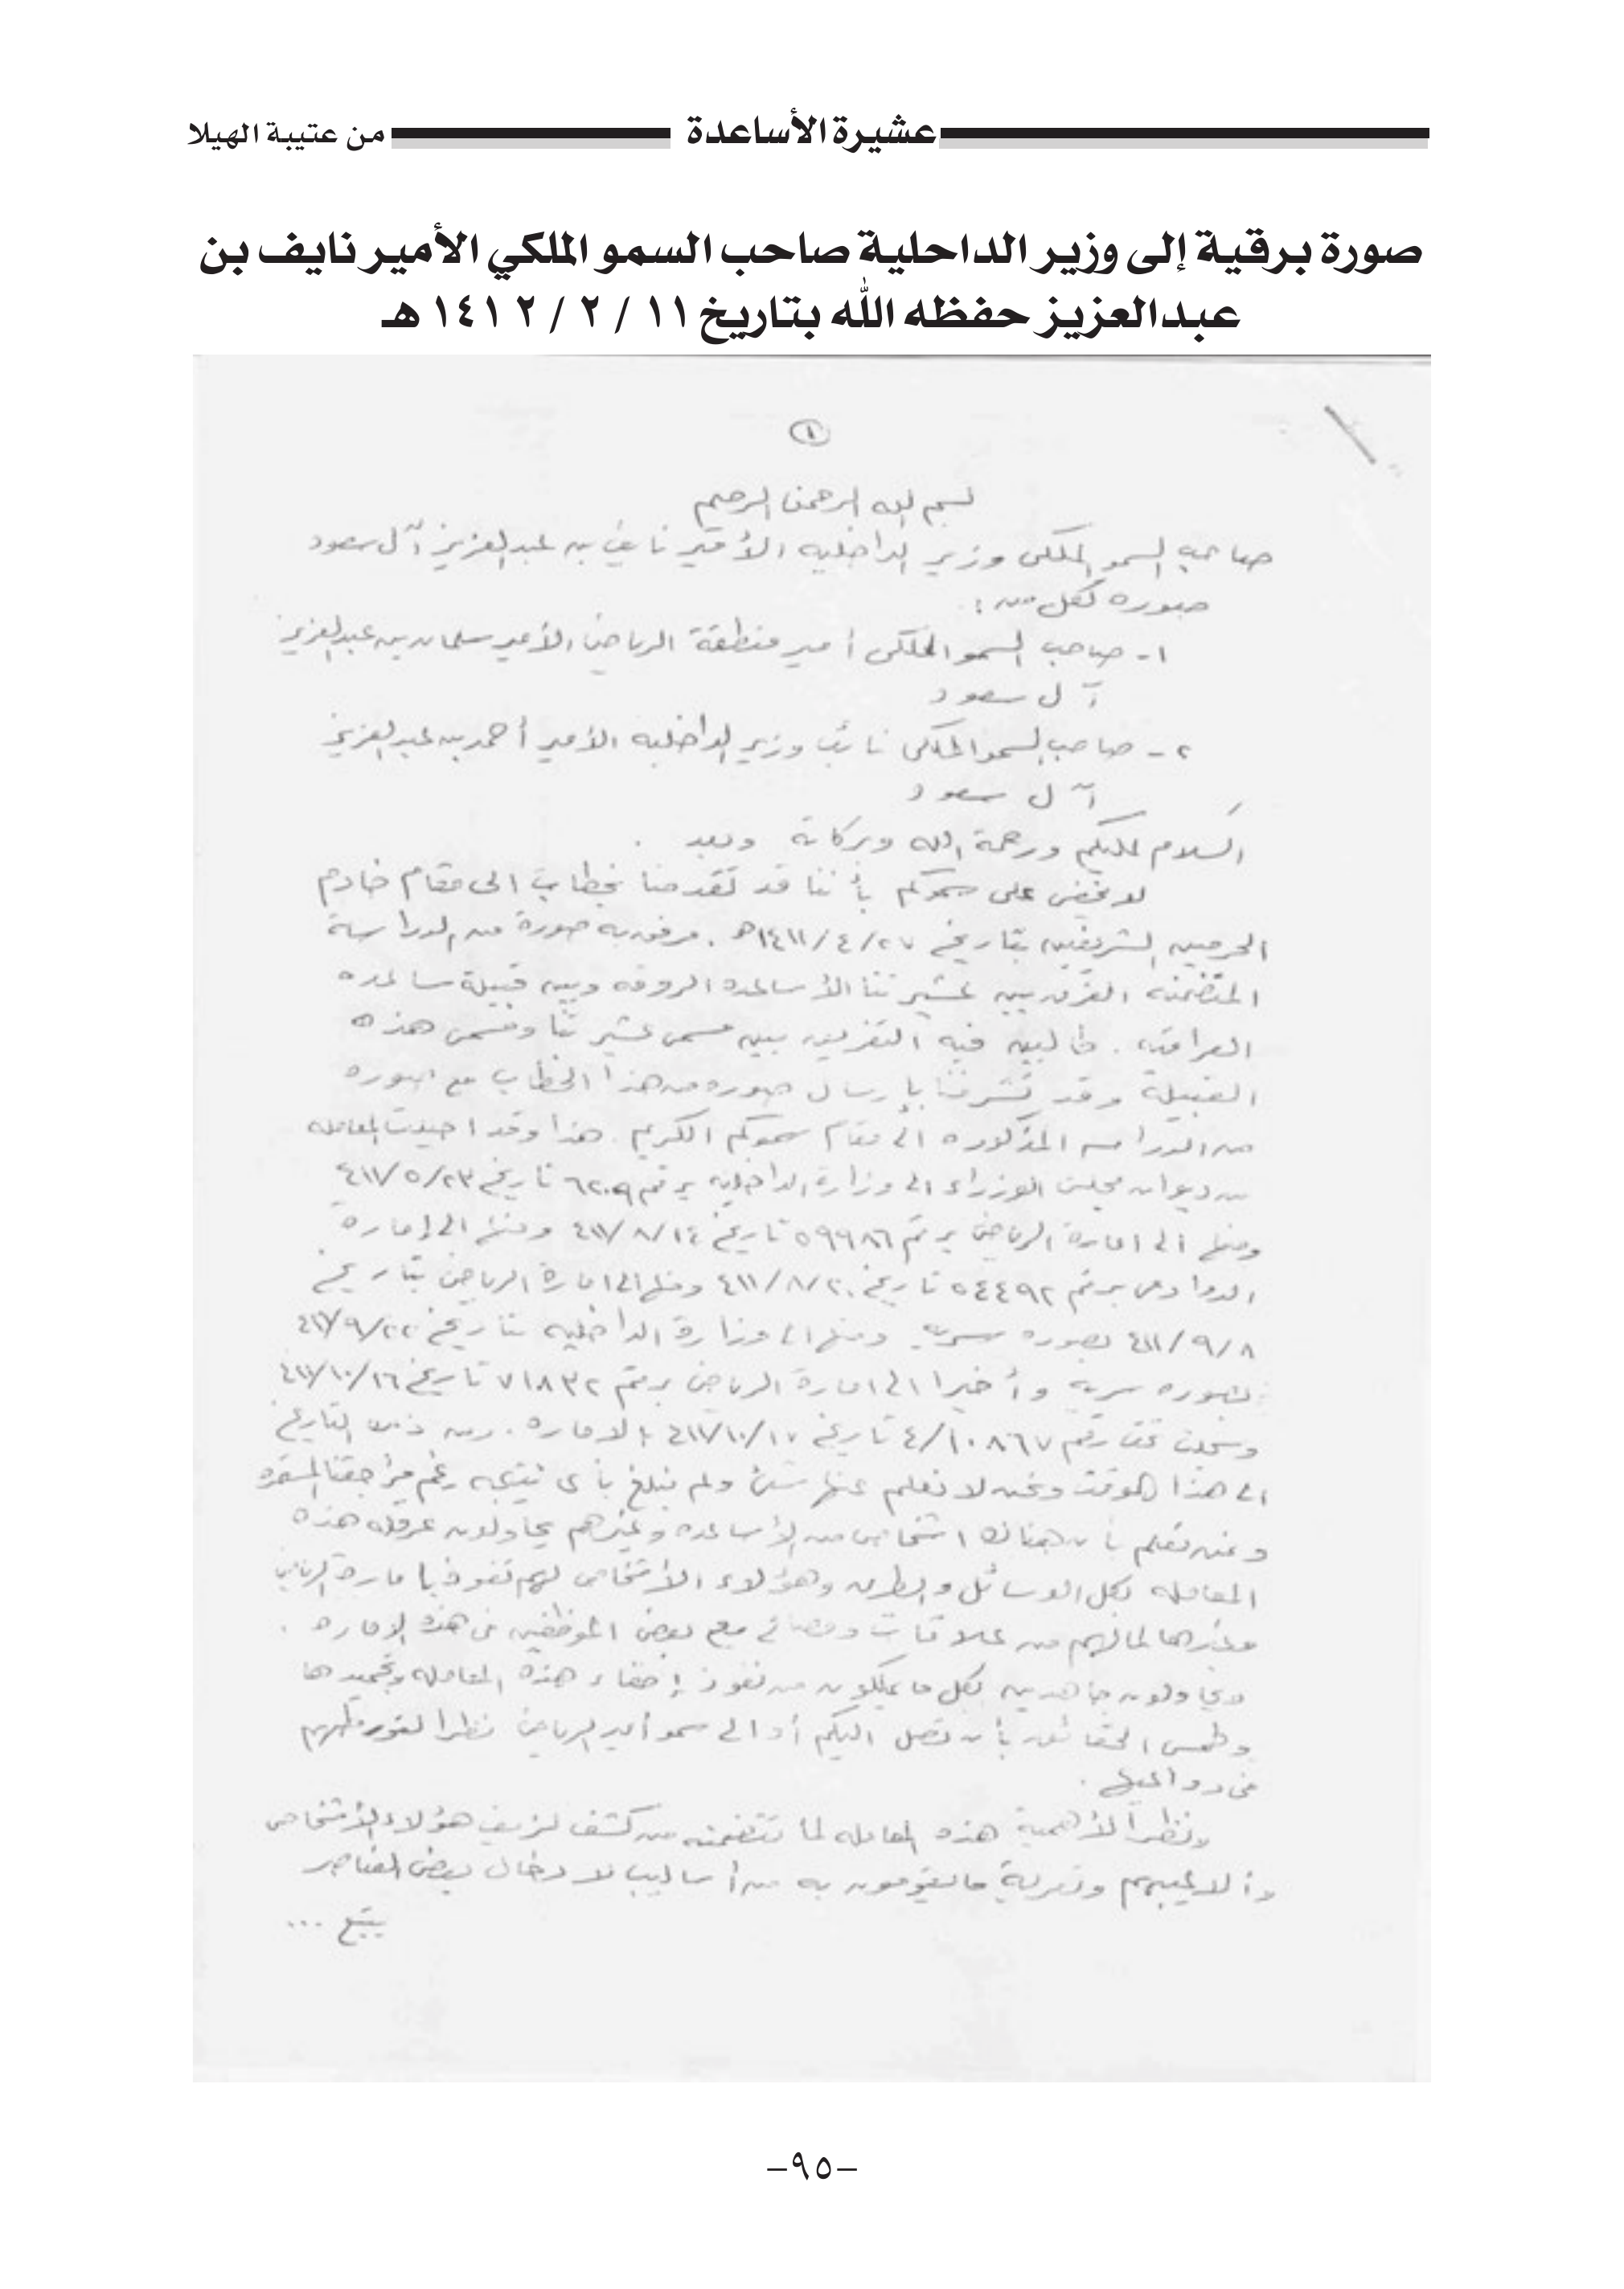 عشيرة الأساعدة
من عتيبة الهيلا
صورة برقية إلى وزير الداحلية صاحب السمو الملكي الأمير نايف بن
عبدالعزيز حفظه الله بتاريخ ١١ / ٢ / ١٤١٢ هـ
١
بسم الله الرحمن الرحيم
صاحب السمو الملكى وزير الداخليه الأمير نايف بن عبدالعزيز آل سعود
صوره لكل من :
١- صاحب السمو الملكى أمير منطقة الرياض الأمير سلمان بن عبدالعزيز
آل سعود
٢- صاحب السمو الملكى نائب وزير الداخليه الأمير أحمد بن عبدالعزيز
آل سعود
السلام عليكم ورحمة الله وبركاته وبعد .
لا يخفى على سموكم بأننا قد تقدمنا بخطاب الى مقام خادم
الحرمين الشريفين بتاريخ ٢٧/٤/١٤١١هـ . مرفق به صورة من الدراسة
المتضمنه الفرق بين عشيرتنا الأساعده الروقه وبين قبيلة ساعده
العراقيه . طالبين فيه التفريق بين مسمى عشيرتنا ومسمى هذه
القبيلة وقد تشرفنا بإرسال صوره من هذا الخطاب مع صوره
من الدراسه المذكوره الى مقام سموكم الكريم . هذا وقد احيلت المعامله
من ديوان مجلس الوزراء الى وزارة الداخليه برقم ٦٢٠٩ تاريخ ٤١١/٥/٢٣
ومنها الى امارة الرياض برقم ٥٩٩٨٦ تاريخ ٤١١/٨/١٤ ومنها الى إمارة
الدوادمى برقم ٥٤٤٩٢ تاريخ ٤١١/٨/٢٠ ومنها الى امارة الرياض بتاريخ
٤١١/٩/٨ بصوره سريه ومنها الى وزارة الداخليه بتاريخ ٤١١/٩/٢٢
بصوره سريه وأخيرا الى امارة الرياض برقم ٧١٨٣٢ تاريخ ٤١١/١٠/١٦
وسجلت تحت رقم ٤/١٠٨٦٧ تاريخ ٤١١/١٠/١٧ بالاماره . ومن ذلك التاريخ
الى هذا الوقت ونحن لا نعلم عنها شئ ولم نبلغ بأى نتيجه رغم مراجعتنا المستمره
ونحن نعلم بأن هناك اشخاص من الأساعده وغيرهم يحاولون عرقله هذه
المعامله بكل الوسائل والطرق وهؤلاء الأشخاص لهم نفوذ بامارة الرياض
وغيرها لما لهم من علاقات مع بعض الموظفين فى هذه الاماره .
ويحاولون جاهدين بكل ما يملكون من نفوذ إخفاء هذه المعامله وتجميدها
وطمس الحقائق بأن تصل اليكم أو الى سمو أمير الرياض نظرا لتورطهم
فى دواعيها .
ونظراً لأهمية هذه المعامله لما تتضمنه من كشف لزيف هؤلاء الأشخاص
وألاعيبهم وتعرية ما يقومون به من أساليب لادخال بعض العناصر
يتبع ...
-٩٥-